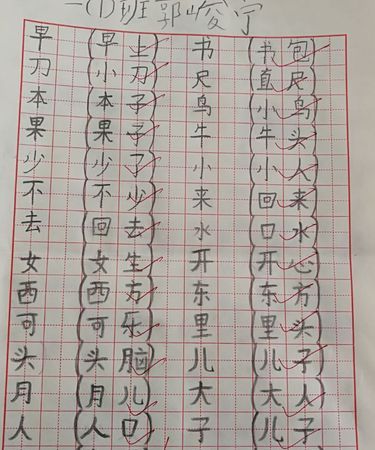 一(1)班郭峻宁
早 (早上) 书 (书包)
刀 (小刀) 尺 (直尺)
本 (本子) 鸟 (小鸟)
果 (果子) 牛 (牛头)
少 (少了) 小 (小人)
不 (不少) 来 (回来)
去 (回去) 水 (口水)
女 (女生) 开 (开心)
西 (西方) 东 (东方)
可 (可乐) 里 (里头)
头 (头脑) 儿 (儿子)
月 (月儿) 大 (大人)
人 (人口) 子 (儿子)